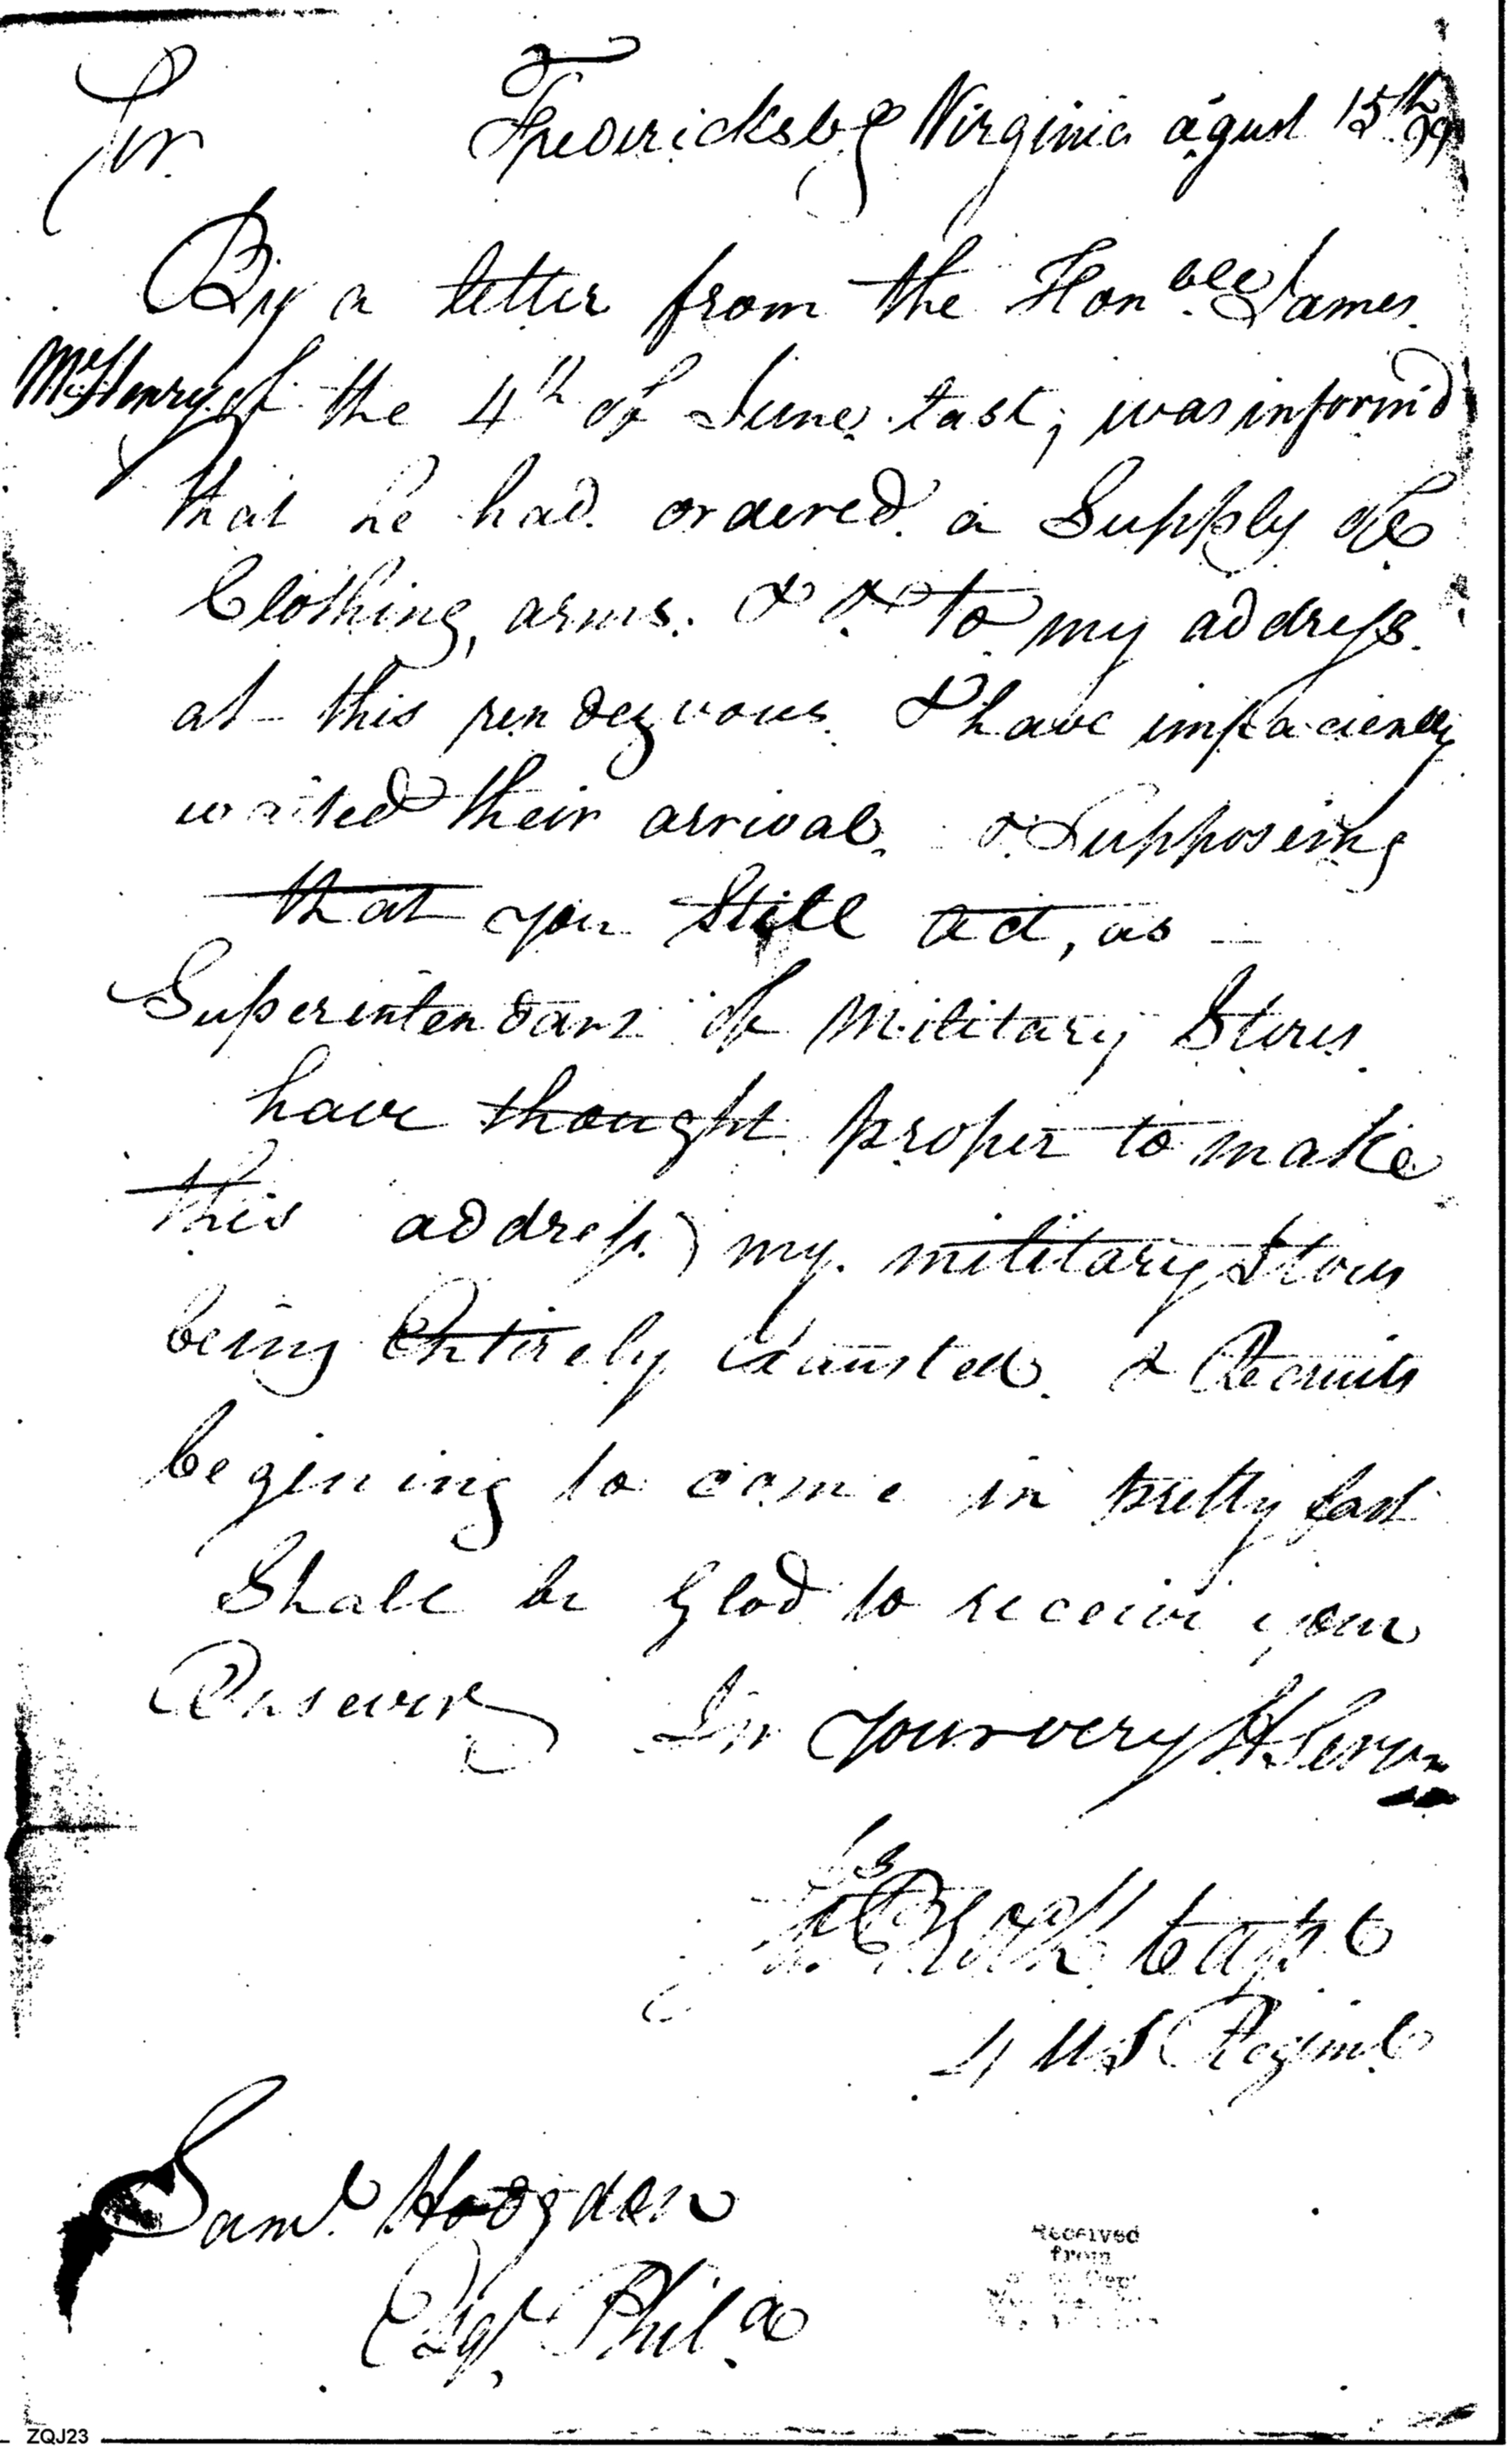 Sir Fredericksbg Virginia agust 15th 99
By a letter from the Honble James
McHenry of the 4th of June last, was inform'd
that he had ordered a Supply of
Clothing, arms. & &c to my address
at this rendezvous I have impaciently
waited their arrival. & Supposing
that you Still act, as
Superintendant of Military Stores
have thought proper to make
this address) my military Stores
being Entirely Exausted & Recruits
begining to come in pretty fast
Shall be Glad to receive your
Answer Sir your very H Servn
Capt
4 US Regimt
Saml Hodgden
Esqr. Phila
Received
from
ZQJ23